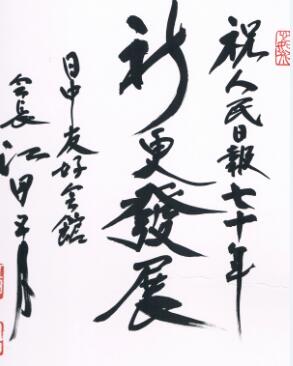 祝人民日報七十年
新更發展
日中友好会館
会長 江田五月